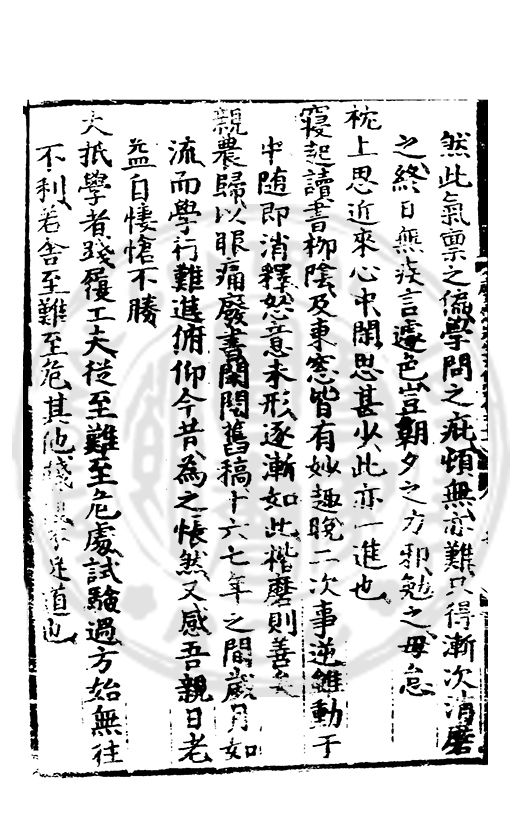 然此氣禀之偏學問之疵頓無亦難只得漸次消磨
之終日無疾言遽色豈朝夕之力邪勉之毋怠
枕上思近來心中閑思甚少此亦一進也
寢起讀書柳陰及東窓皆有妙趣晚二次事逆雖動于
中随即消釋怒意未形逐漸如此楷磨則善矣
親農歸以眼痛廢書閑閱舊稿十六七年之間歲月如
流而學行難進俯仰今昔為之悵然又感吾親日老
益自悽愴不勝
大抵學者踐履工夫從至難至危處試驗過方始無往
不利若舍至難至危其他踐不足道也